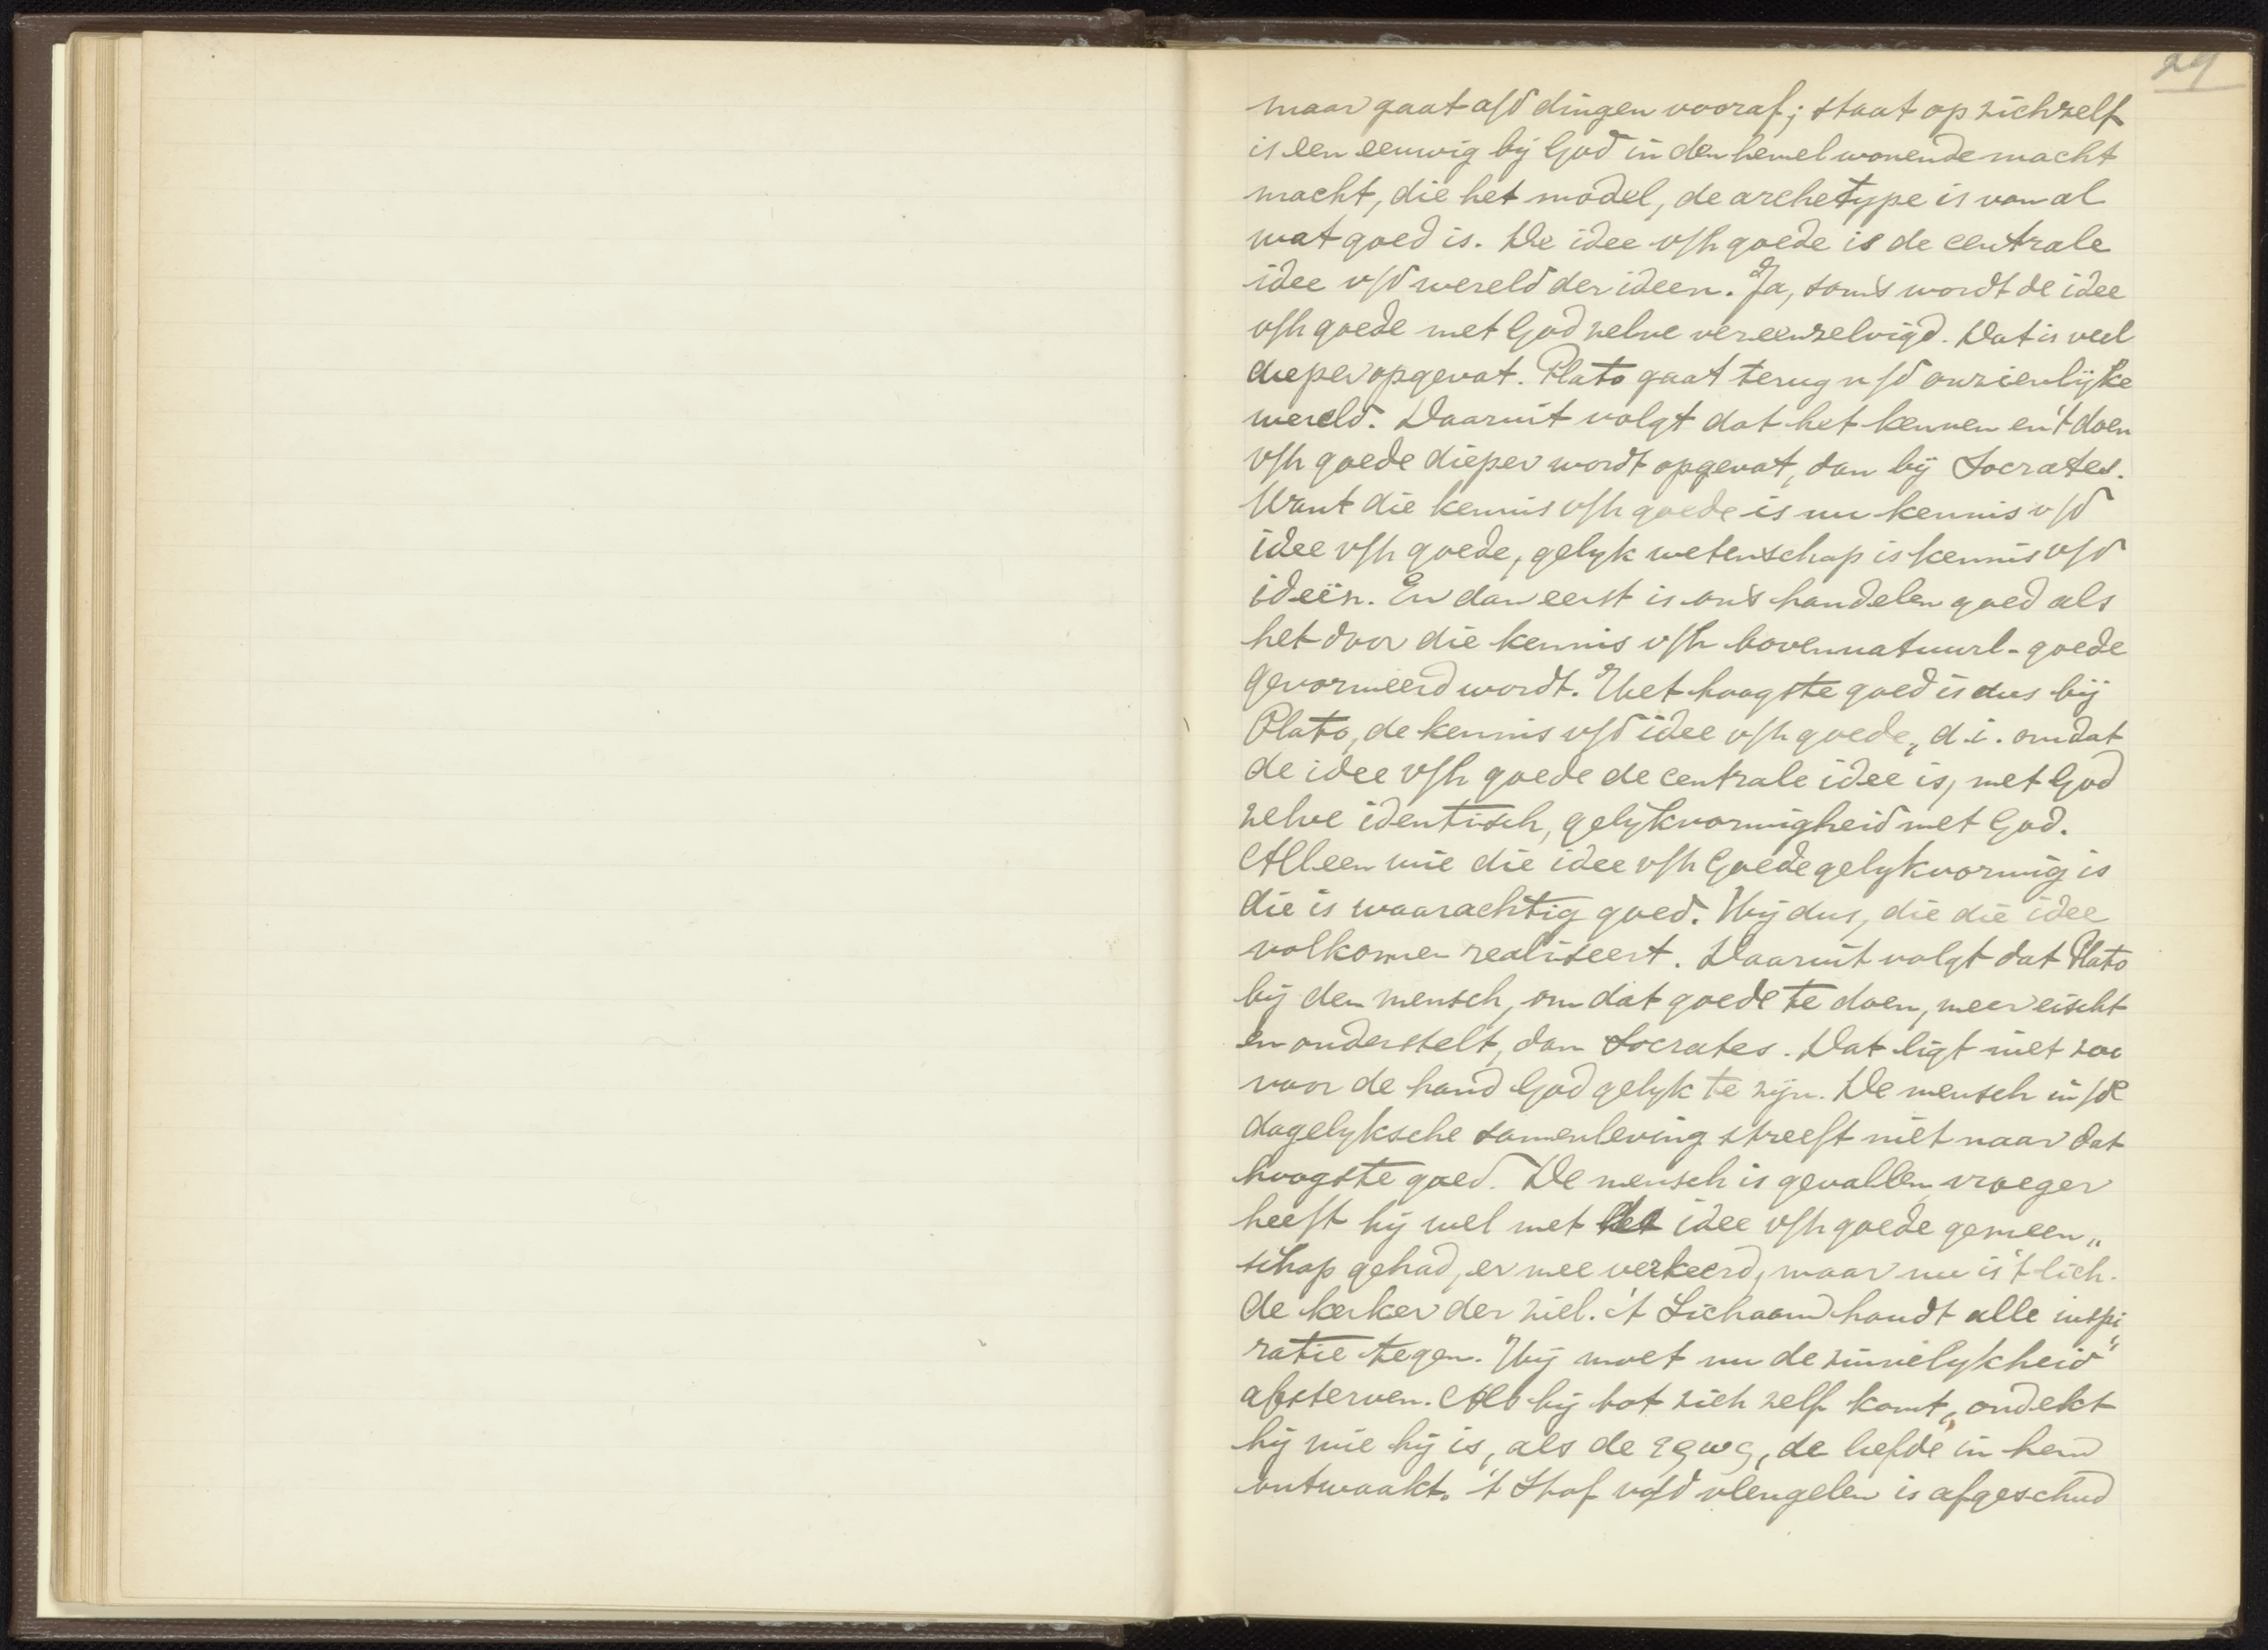 29
maar gaat a/d dingen vooraf; staat op zichzelf
is een eeuwig bij God in den hemel wonende macht
macht, die het model, de archetype is van al
wat goed is. De idee v/h goede is de centrale
idee v/d wereld der ideen. Ja, soms wordt de idee
v/h goede met God zelve vereenzelvigd. Dat is veel
dieper opgevat. Plato gaat terug n/d onzienlijke
wereld. Daaruit volgt dat het kennen en 't doen
v/h goede dieper wordt opgevat, dan bij Socrates.
Want die kennis v/h goede is nu kennis v/d
idee v/h goede, gelyk wetenschap is kennis v/d
ideën. En dan eerst is ons handelen goed als
het door die kennis v/h bovennatuurl. goede
gevormeerd wordt. Het hoogste goed is dus bij
Plato, de kennis v/d idee v/h goede, d.i. omdat
de idee v/h goede de centrale idee is, met God
zelve identisch, gelykvormigheid met God.
Alleen wie die idee v/h Goede gelykvormig is
die is waarachtig goed. Hij dus, die die idee
volkomen realiseert. Daaruit volgt dat Plato
bij den mensch, om dat goede te doen, meer eischt
en onderstelt, dan Socrates. Dat ligt niet zoo
voor de hand God gelyk te zijn. De mensch in/de
dagelyksche samenleving streeft niet naar dat
hoogste goed. De mensch is gevallen, vroeger
heeft hij wel met de idee v/h goede gemeen„
schap gehad, er mee verkeerd, maar nu is 't lich.
de kerker der ziel. 't Lichaam houdt alle inspi„
ratie tegen. Hij moet nu de zinnelykheid
afsterven. Als hij tot zich zelf komt, ondekt
hij wie hij is, als de ερως, de liefde in hem
ontwaakt. 't Stof v/d vleugelen is afgeschud